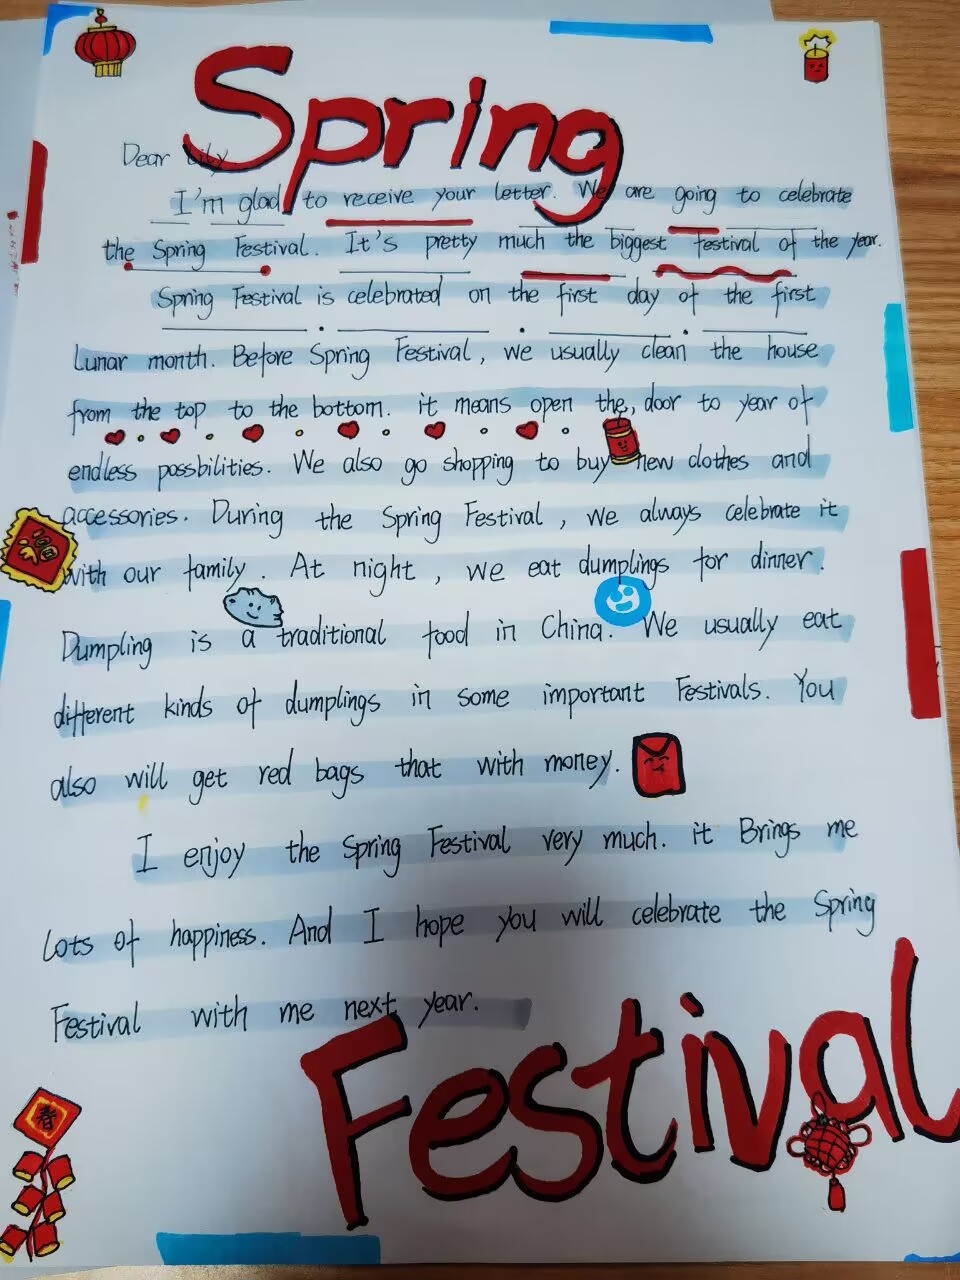 Spring
Dear Lily,
I'm glad to receive your letter. We are going to celebrate
the Spring Festival. It's pretty much the biggest festival of the year.
Spring Festival is celebrated on the first day of the first
Lunar month. Before Spring Festival, we usually clean the house
from the top to the bottom. it means open the, door to year of
endless possbilities. We also go shopping to buy new clothes and
accessories. During the Spring Festival, we always celebrate it
with our family. At night, we eat dumplings for dinner.
Dumpling is a traditional food in China. We usually eat
different kinds of dumplings in some important Festivals. You
also will get red bags that with money.
I enjoy the Spring Festival very much. it Brings me
Lots of happiness. And I hope you will celebrate the Spring
Festival with me next year.
Festival
春